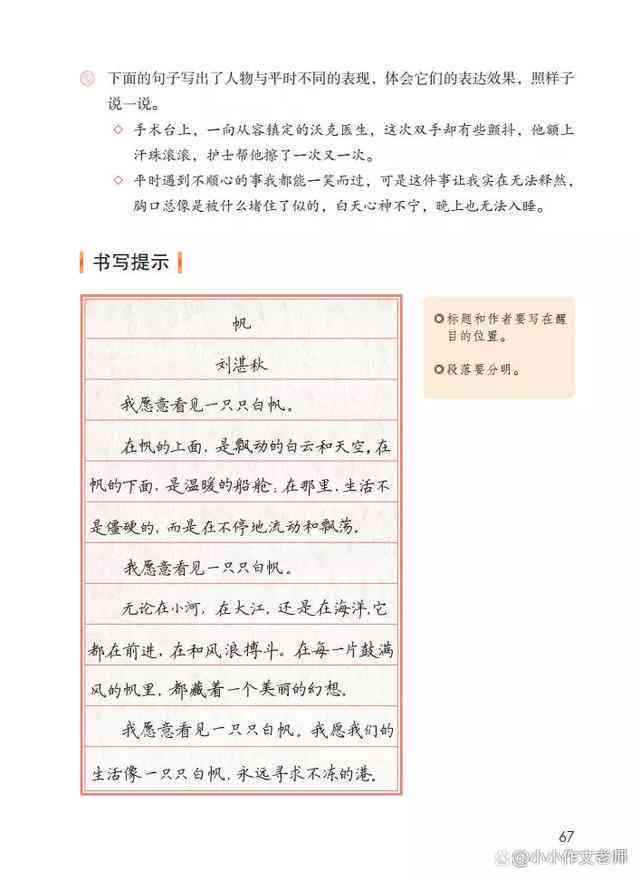 下面的句子写出了人物与平时不同的表现，体会它们的表达效果，照样子
说一说。
◇ 手术台上，一向从容镇定的沃克医生，这次双手却有些颤抖，他额上
汗珠滚滚，护士帮他擦了一次又一次。
◇ 平时遇到不顺心的事我都能一笑而过，可是这件事让我实在无法释然，
胸口总像是被什么堵住了似的，白天心神不宁，晚上也无法入睡。
书写提示
帆
刘湛秋
我愿意看见一只只白帆。
在帆的上面，是飘动的白云和天空，在
帆的下面，是温暖的船舱；在那里，生活不
是僵硬的，而是在不停地流动和飘荡。
我愿意看见一只只白帆。
无论在小河，在大江，还是在海洋，它
都在前进，在和风浪搏斗。在每一片鼓满
风的帆里，都藏着一个美丽的幻想。
我愿意看见一只只白帆。我愿我们的
生活像一只只白帆，永远寻求不冻的港。
标题和作者要写在醒
目的位置。
段落要分明。
67
@小小作文老师